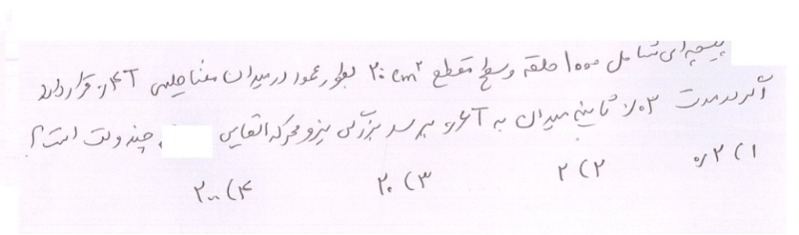 پیچه ای شامل ۱۰۰۰ حلقه و سطح مقطع ۲۰ cm² بطور عمود در میدان مغناطیسی ۰/۴T قرار دارد
اگر در مدت ۰/۰۳ ثانیه میدان به ۰/۶T برسد بزرگی نیرو محرکه القایی چند ولت است؟
۱) ۰/۲ ۲) ۲ ۳) ۲۰ ۴) ۲۰۰